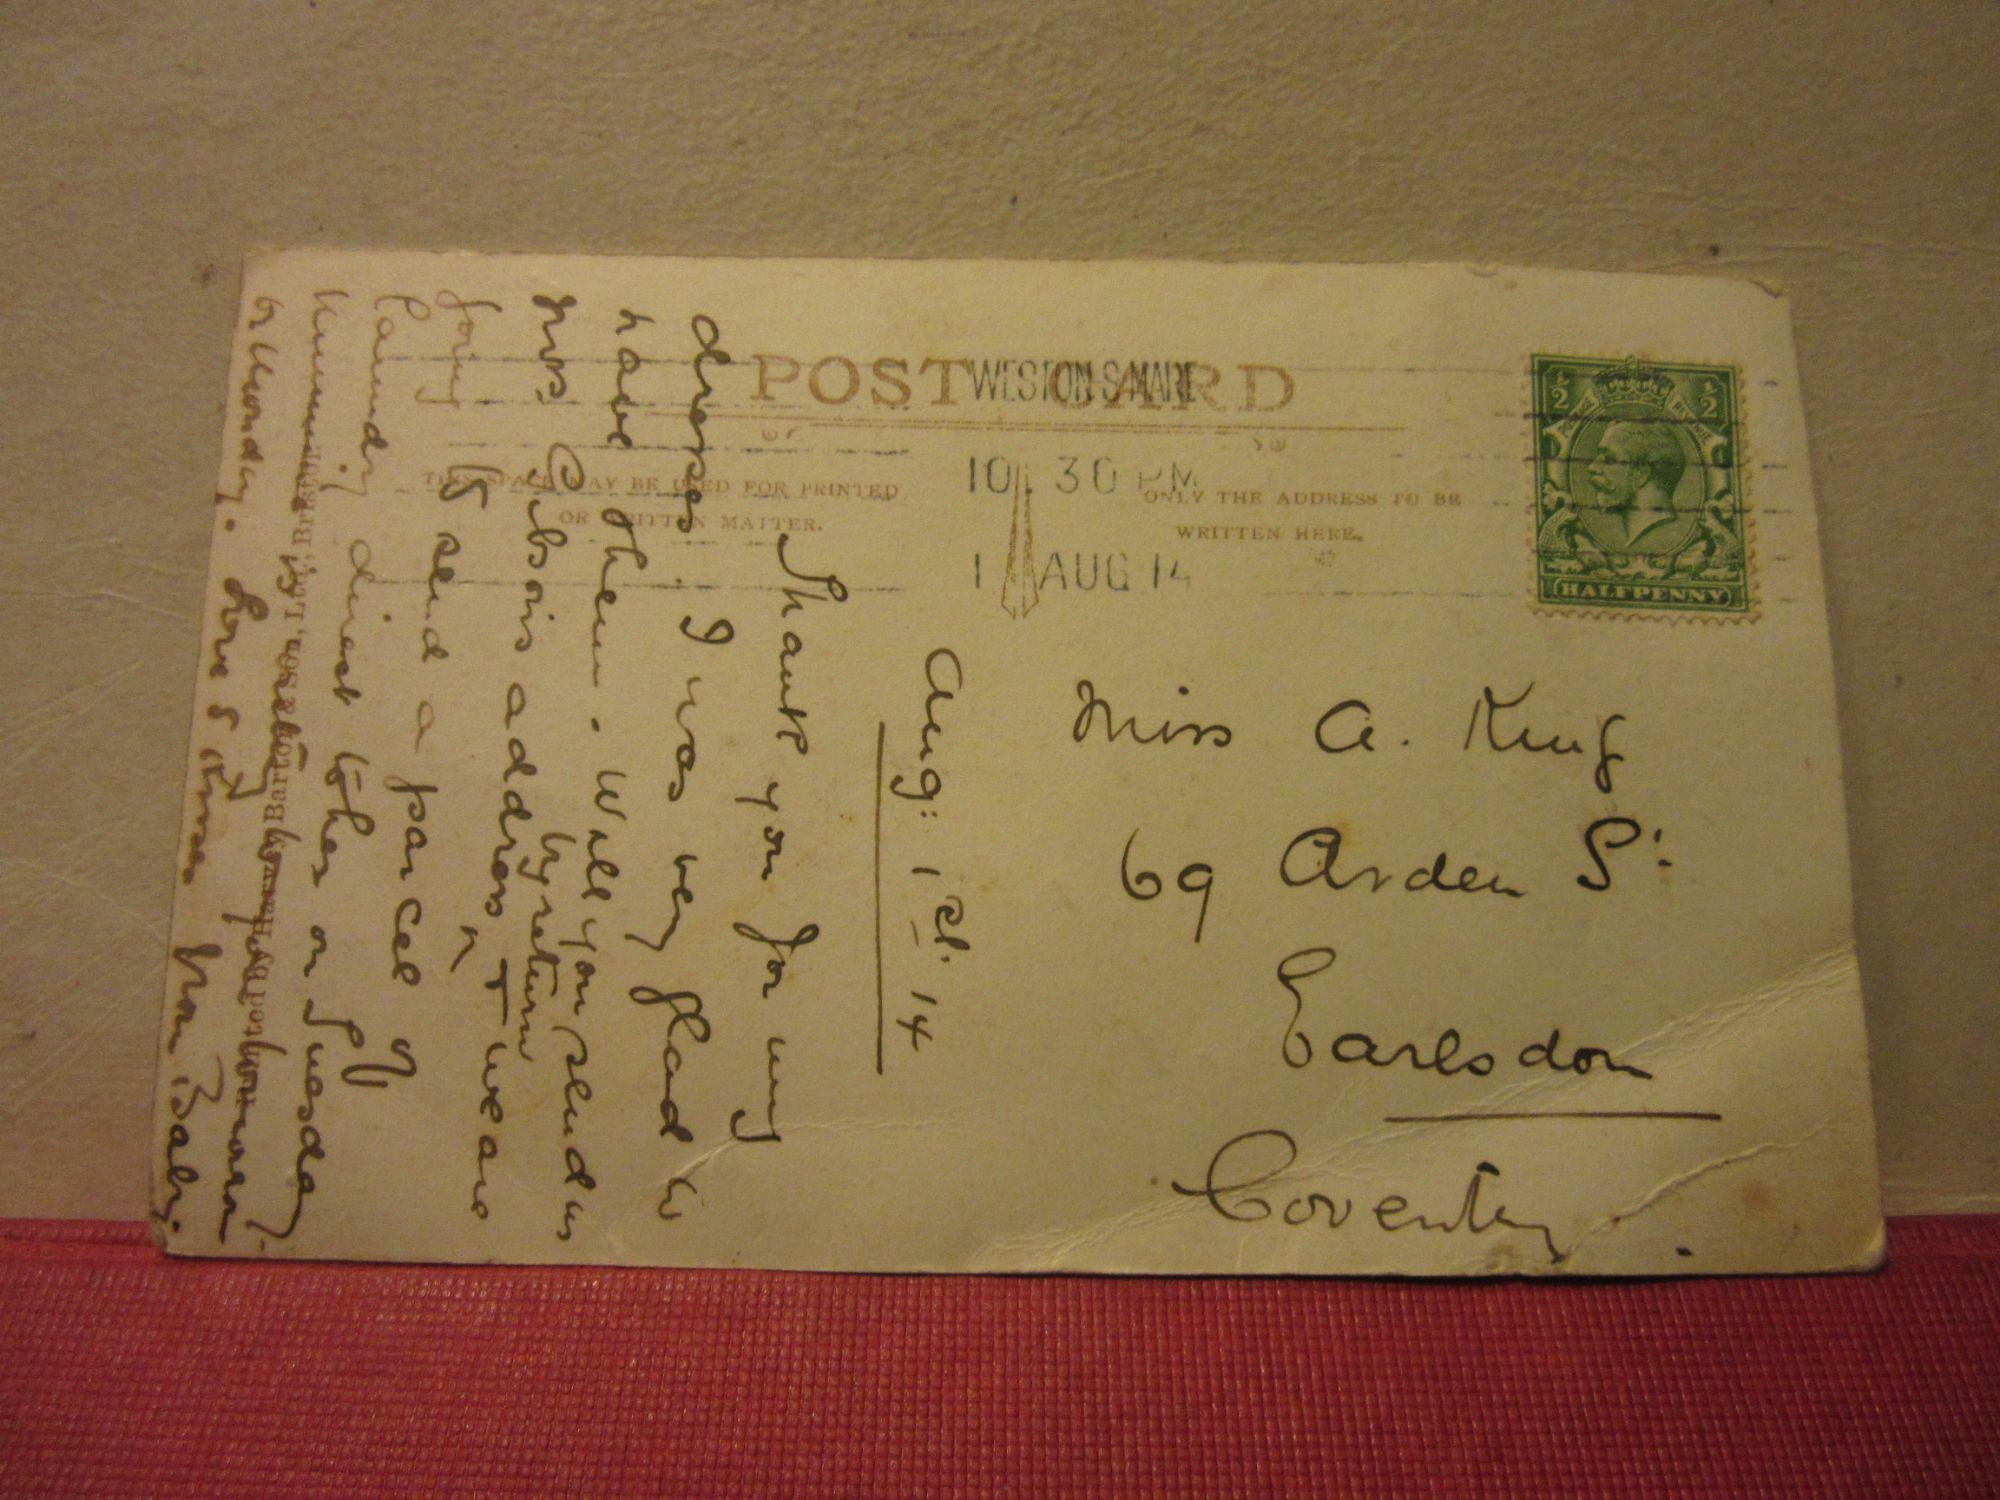 POST CARD
WESTON-S-MARE
10. 30 PM
1 AUG 14
THIS SPACE MAY BE USED FOR PRINTED
OR WRITTEN MATTER.
ONLY THE ADDRESS TO BE
WRITTEN HERE.
½ ½
POSTAGE REVENUE
HALFPENNY
Miss A. King
69 Arden St.
Earlsdon
Coventry.
Aug: 1st. 14
Thank you for my
dresses. I was very glad to
have them. Will you send us
by return
Mrs Gibson's address we are
going to send a parcel of
laundry direct to her on Tuesday
or Monday. Love & kisses from Baby.
Barton & Son, Ltd., Bristol